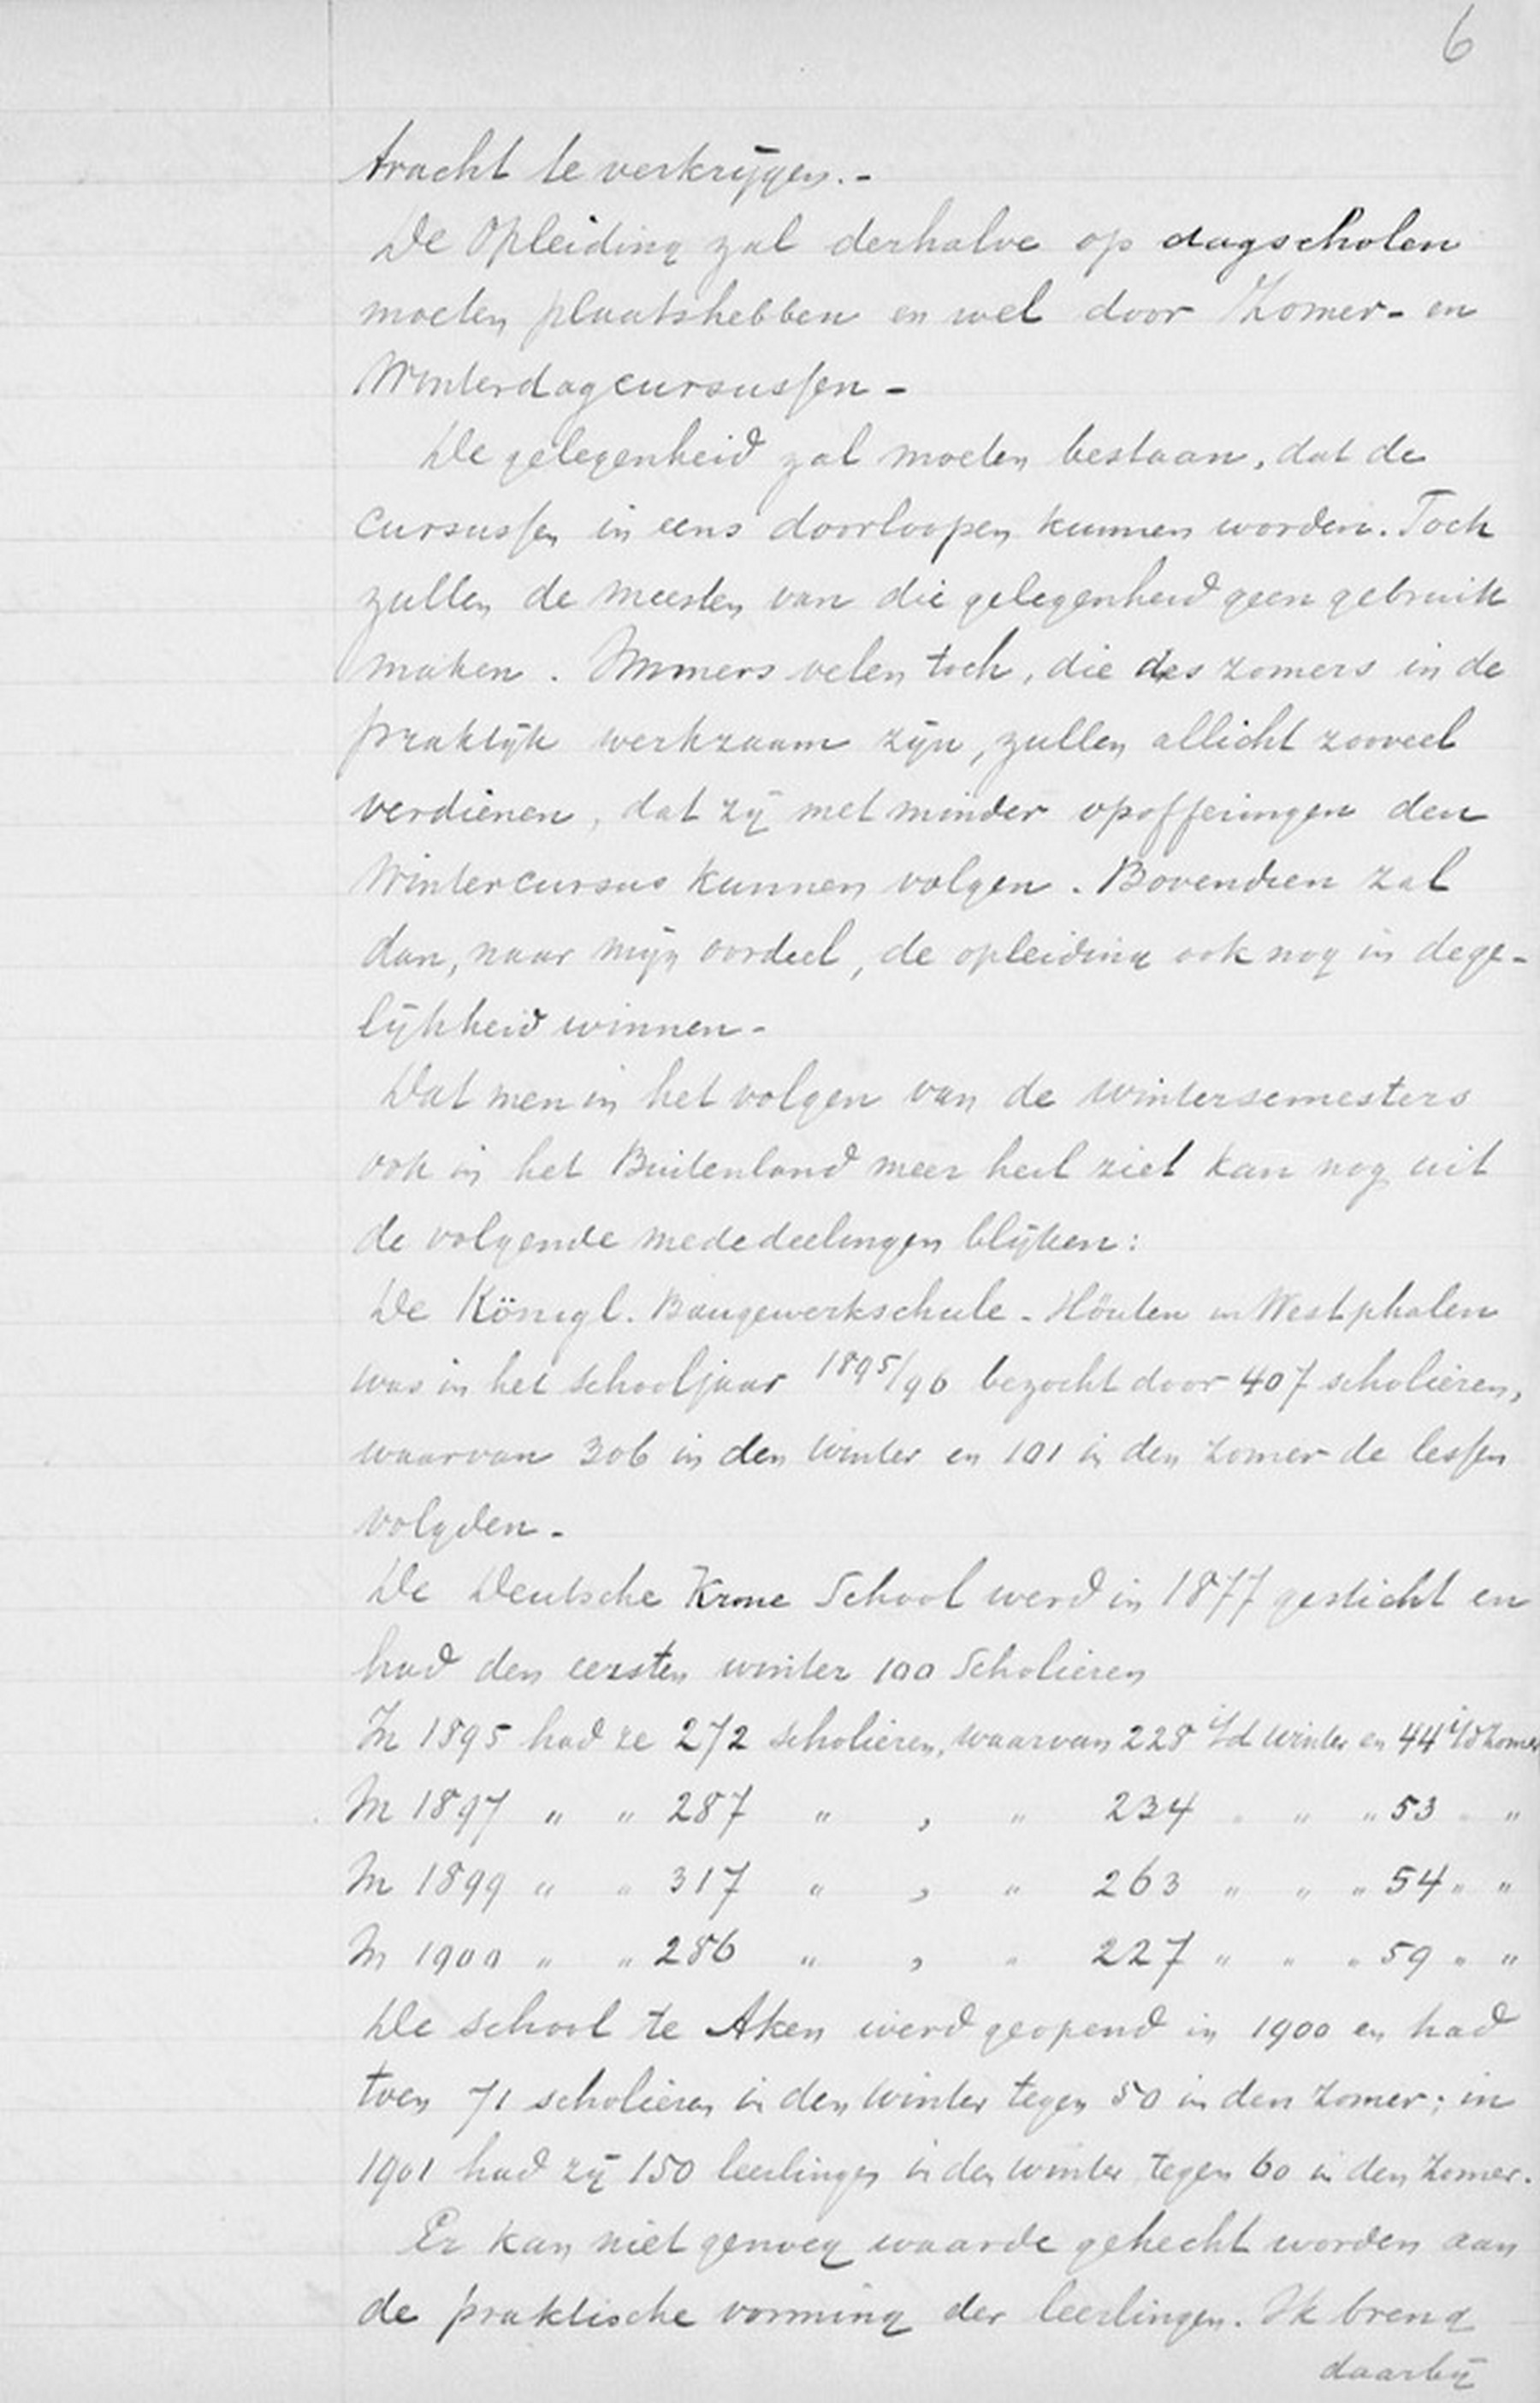 6
tracht te verkrijgen.-
De Opleiding zal derhalve op dagscholen
moeten plaatshebben en wel door Zomer- en
Winterdagcursussen-
De gelegenheid zal moeten bestaan, dat de
cursussen in eens doorloopen kunnen worden. Toch
zullen de meesten van die gelegenheid geen gebruik
maken. Immers velen toch, die des zomers in de
praktijk werkzaam zijn, zullen allicht zooveel
verdienen, dat zij met minder opofferingen den
Wintercursus kunnen volgen. Bovendien zal
dan, naar mijn oordeel, de opleiding ook nog in dege-
lijkheid winnen-
Dat men in het volgen van de wintersemesters
ook in het Buitenland meer heil ziet kan nog uit
de volgende mededeelingen blijken:
De Königl. Baugewerkschule - in Westphalen
was in het schooljaar 1895/96 bezocht door 407 scholieren,
waarvan 306 in den winter en 101 in den zomer de lessen
volgden-
De Deutsche Krone School werd in 1877 gesticht en
had den eersten winter 100 Scholieren
In 1895 had ze 272 scholieren, waarvan 228 i/d winter en 44 i/d Zomer
In 1897 " " 287 " , " 234 " " " 53 " "
In 1899 " " 317 " , " 263 " " " 54 " "
In 1900 " " 286 " , " 227 " " " 59 " "
De school te Aken werd geopend in 1900 en had
toen 71 scholieren in den winter tegen 50 in den zomer; in
1901 had zij 150 leerlingen in den winter tegen 60 in den Zomer.
Er kan niet genoeg waarde gehecht worden aan
de praktische vorming der leerlingen. Ik breng
daarbij